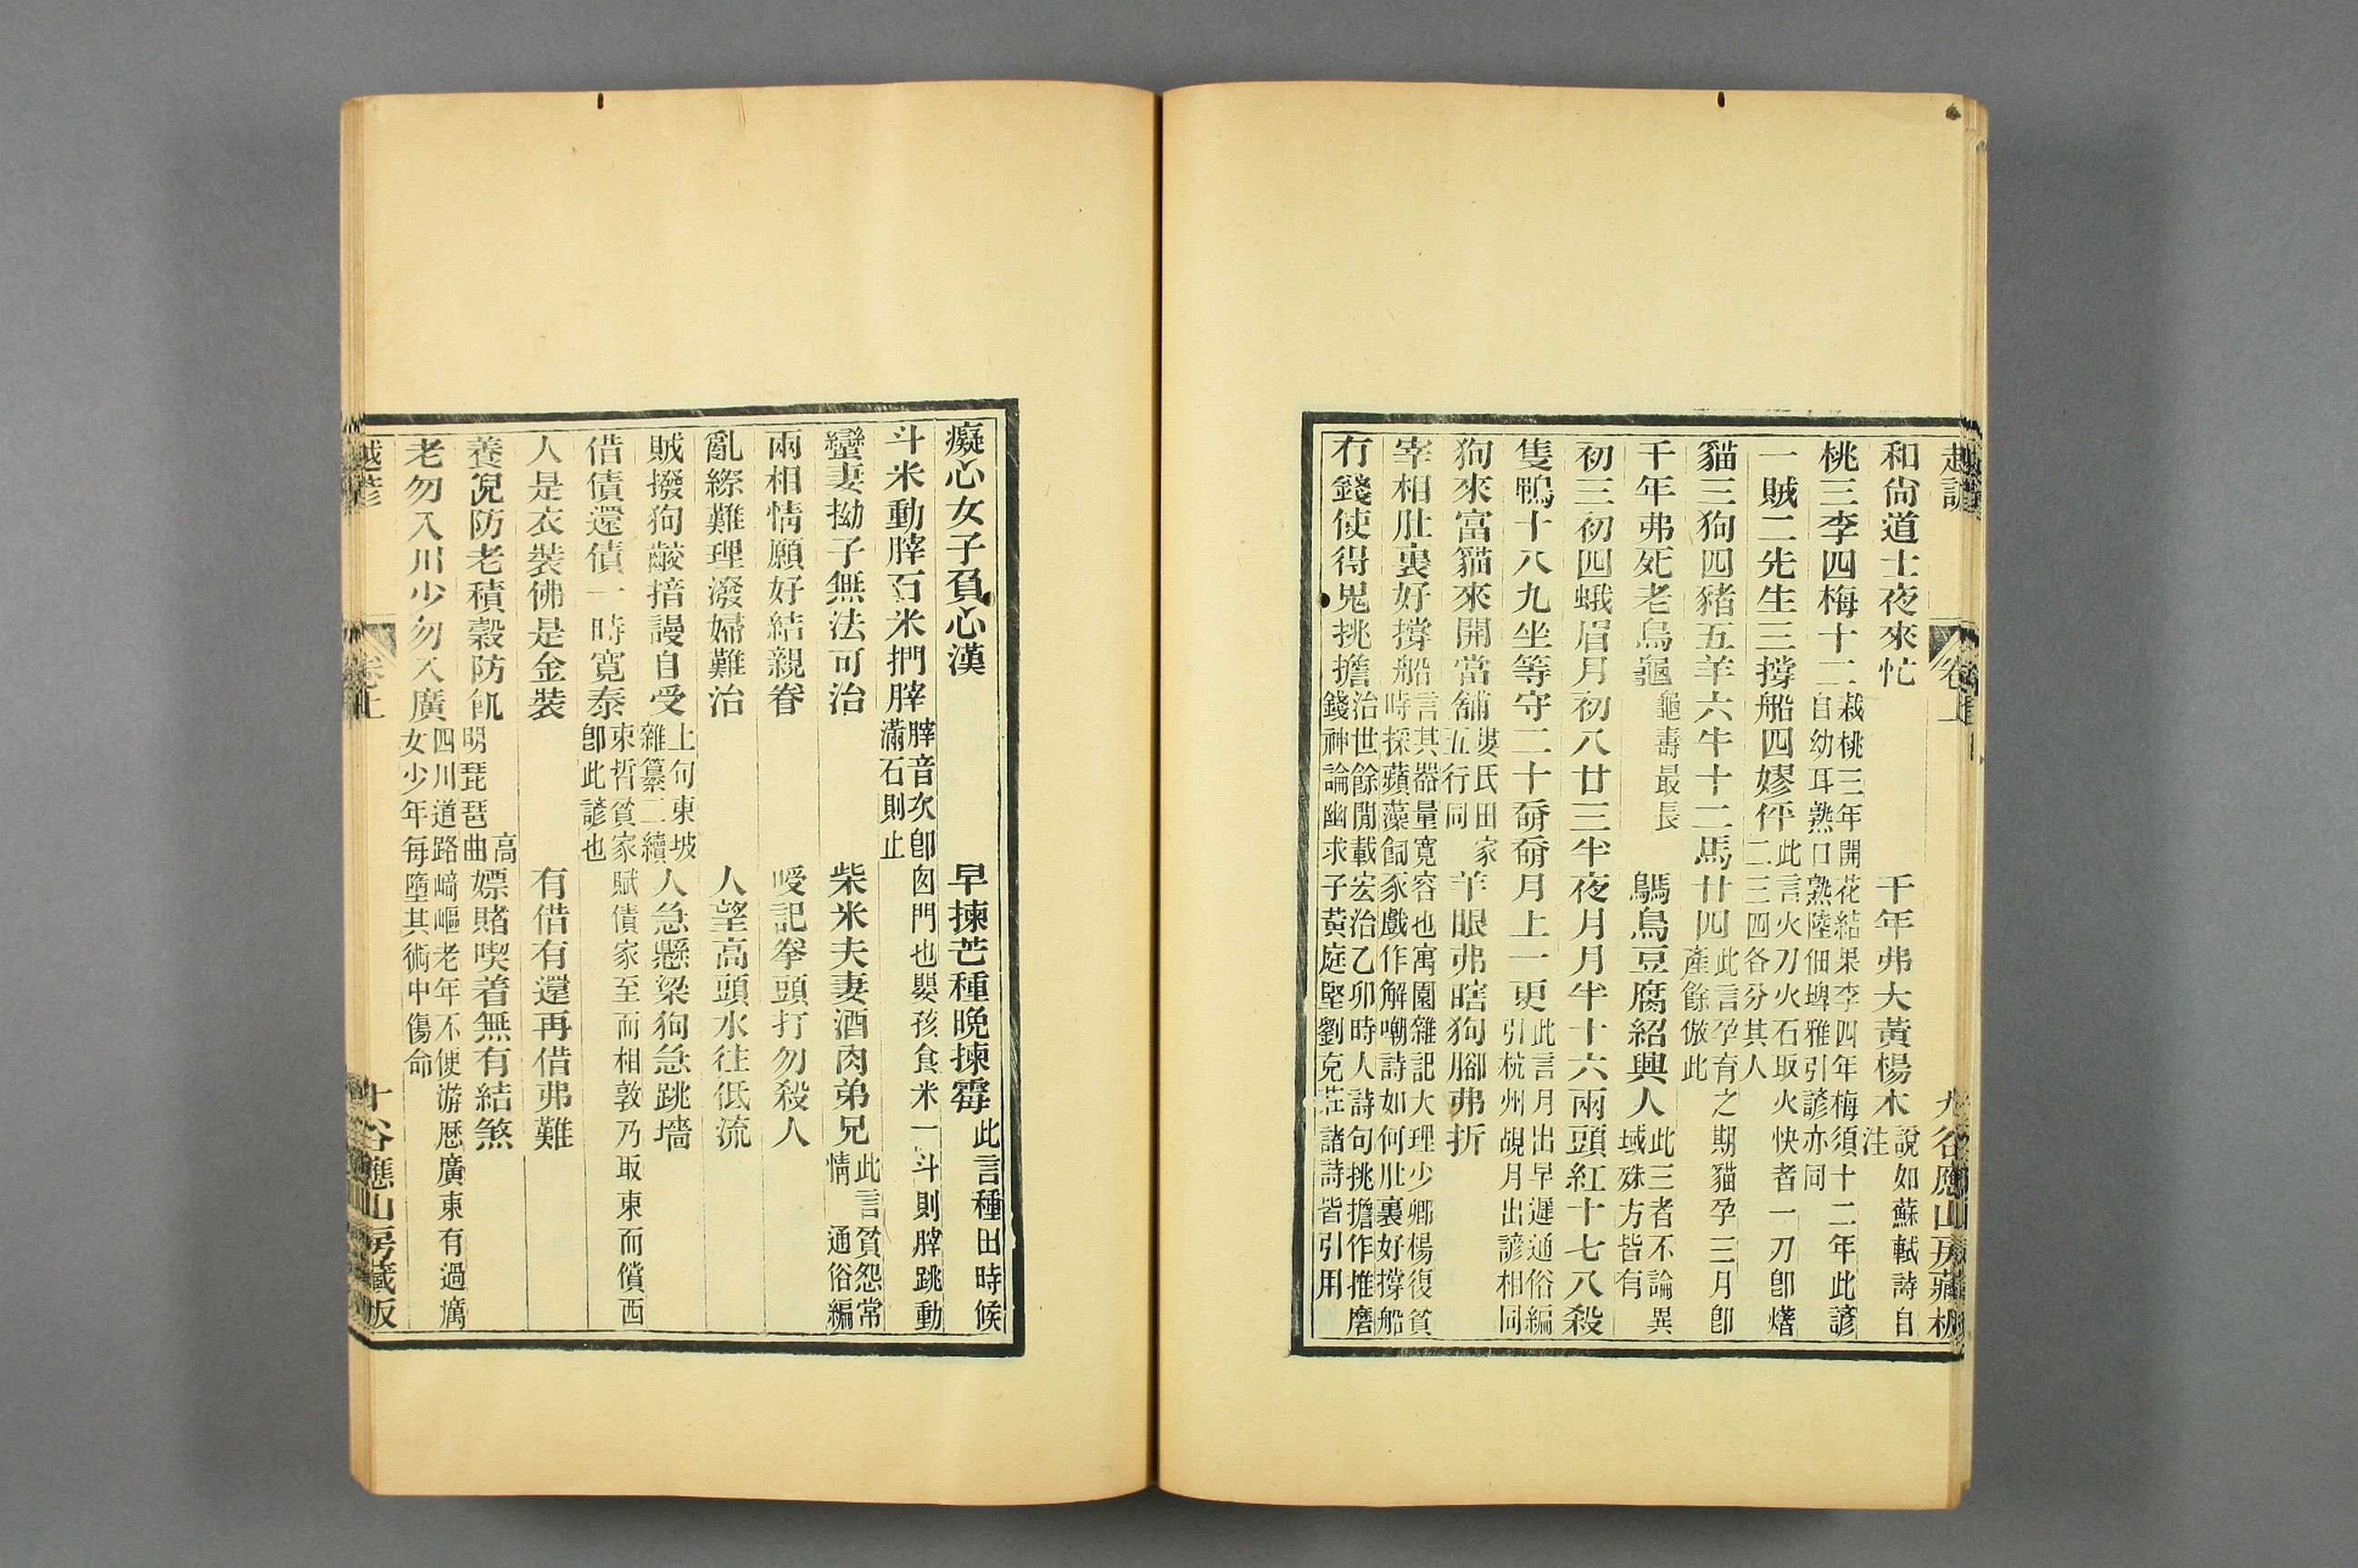 越諺 卷上 九 谷應山房藏板
和尙道士夜來忙 千年弗大黃楊木 說如蘇軾詩自注
桃三李四梅十二 栽桃三年開花結果李四年梅須十二年此諺自幼耳熟口熟陸佃埤雅引諺亦同
一賊二先生三撐船四嫪伻 此言火刀火石取火快者一刃卽𤏲二三四各分其人
貓三狗四豬五羊六牛十二馬廿四 此言孕育之期貓孕三月卽產餘倣此
千年弗死老烏龜 龜壽最長 鷌鳥豆腐紹興人 此三者不論異域殊方皆有
初三初四蛾眉月初八廿三半夜月月半十六兩頭紅十七八殺
隻鴨十八九坐等守二十奝奝月上一更 此言月出早遲通俗編引杭州覘月出諺相同
狗來富貓來開當舖 婁氏田家五行同 羊眼弗瞎狗腳弗折
宰相肚裏好撐船 言其器量寬容也寓園雜記大理少卿楊復貧時採蘋藻飼豕戲作解嘲詩如何肚裏好撐船
有錢使得鬼挑擔 治世餘聞載宏治乙卯時人詩句挑擔作推磨錢神論幽求子黃庭堅劉克莊諸詩皆引用
癡心女子負心漢 早揀芒種晩揀霉 此言種田時候
斗米動脺石米捫脺 脺音次卽囟門也嬰孩食米一斗則脺跳動滿石則止
蠻妻拗子無法可治 柴米夫妻酒肉弟兄 此言貧怨常情 通俗編
兩相情願好結親眷 嗳記拳頭打勿殺人
亂縩難理潑婦難治 人望高頭水往低流
賊撥狗齩揞謾自受 上句東坡雜纂二續 人急懸梁狗急跳墻
借債還債一時寬泰 束晳貧家賦債家至而相敦乃取東而償西卽此諺也
人是衣裝佛是金裝 有借有還再借弗難
養兒防老積穀防飢 高明琵琶曲 嫖賭喫着無有結煞
老勿入川少勿入廣 四川道路﨑嶇老年不便游歷廣東有過癘女少年每墮其術中傷命
越諺 卷上 十 谷應山房藏板